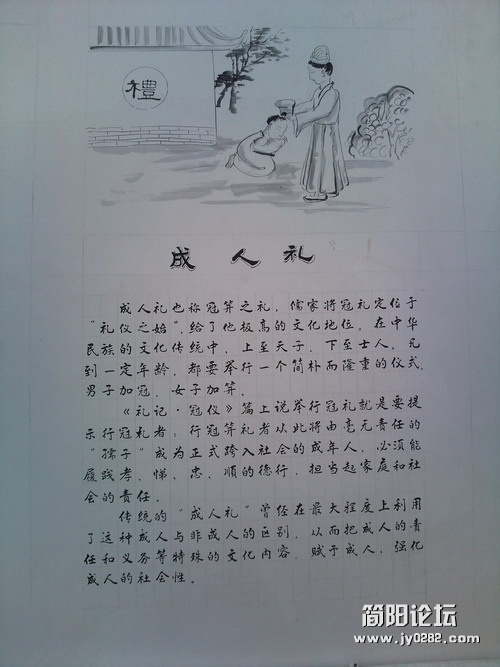 禮
成人礼
成人礼也称冠笄之礼,儒家将冠礼定位于
“礼仪之始”,给了他极高的文化地位。在中华
民族的文化传统中,上至天子,下至士人,凡
到一定年龄,都要举行一个简朴而隆重的仪式,
男子加冠,女子加笄。
《礼记·冠仪》篇上说举行冠礼就是要提
示行冠礼者:行冠笄礼者从此将由毫无责任的
“孺子”成为正式跨入社会的成年人,必须能
履践孝、悌、忠、顺的德行,担当起家庭和社
会的责任。
传统的“成人礼”曾经在最大程度上利用
了这种成人与非成人的区别,从而把成人的责
任和义务等特殊的文化内容,赋予成人,强化
成人的社会性。
简阳论坛
www.jy0282.com